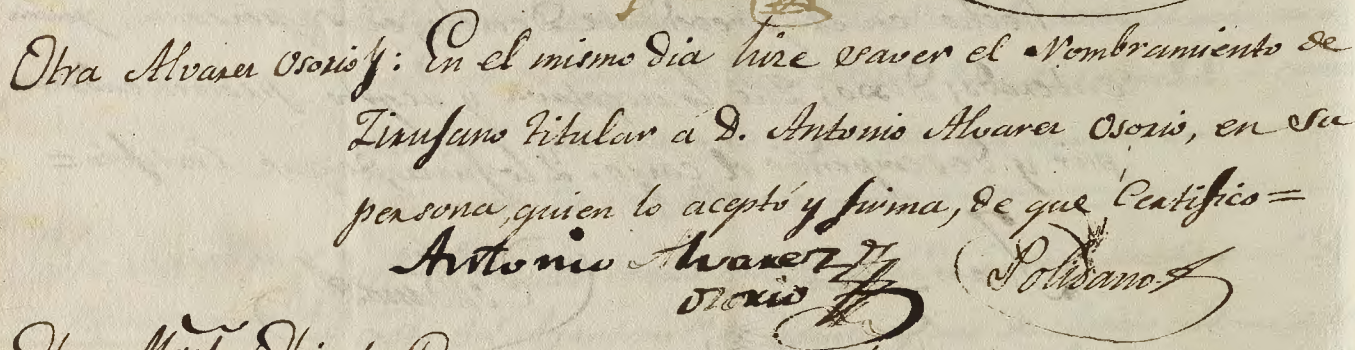 Otra Alvarez Osorio: En el mismo dia hize saver el Nombramiento de
Zirujano titular á D. Antonio Alvarez Osorio, en su
persona, quien lo aceptó y firma, de que Certifico =
Antonio Alvarez
osorio
Polisano